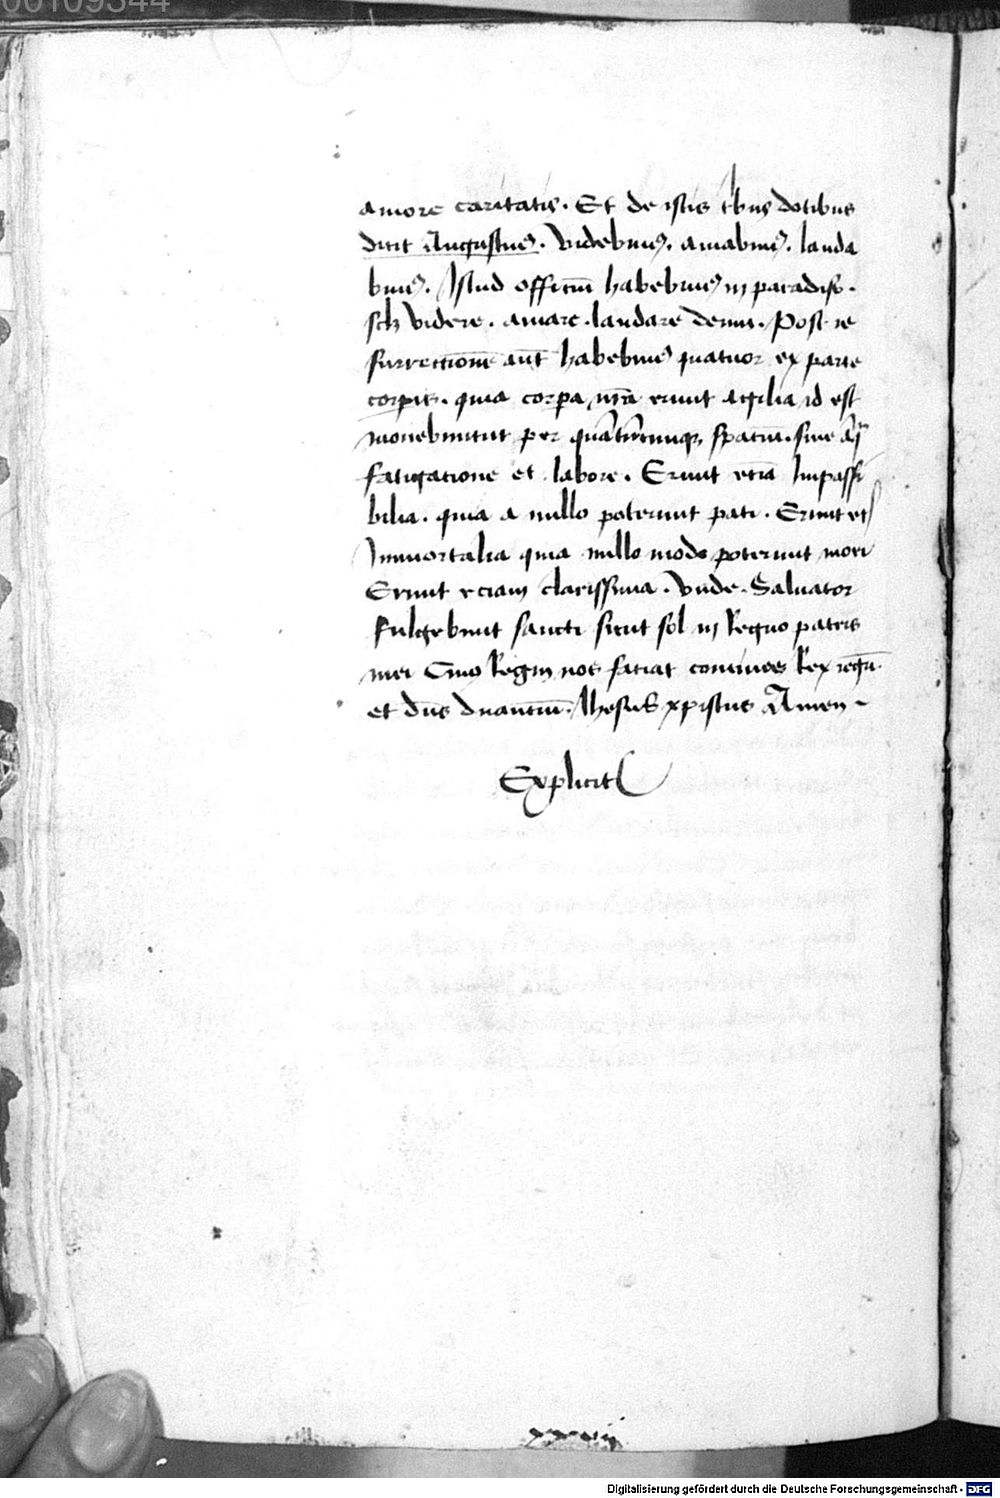 00109344
amore caritatis. Et de istis tbus dotibus
dicit Augustus. Videbim9. amabim9. lauda
bim9. Istud officiū habebim9 in paradiso.
sclꝫ videre. amare. laudare deum. Post re
surrectionē aūt habebim9 quatuor ex parte
corpis. quia corpa nr̄a erunt agilia id est
mouebuntur per quātūcunqꝫ spatiū. sine
fatigatione et labore. Erunt etiā Impassi
bilia. quia a nullo poterunt pati. Erunt et
Immortalia quia nullo modo poterunt mori
Erunt eciam clarissima. Vnde. Saluator
Fulgebunt sancti sicut sol in Regno patris
mei Cuius Regni nos faciat Rex regū.
et dn̄s dn̄antiū. Ihesus xpistus Amen
Explicit
Digitalisierung gefördert durch die Deutsche Forschungsgemeinschaft - DFG